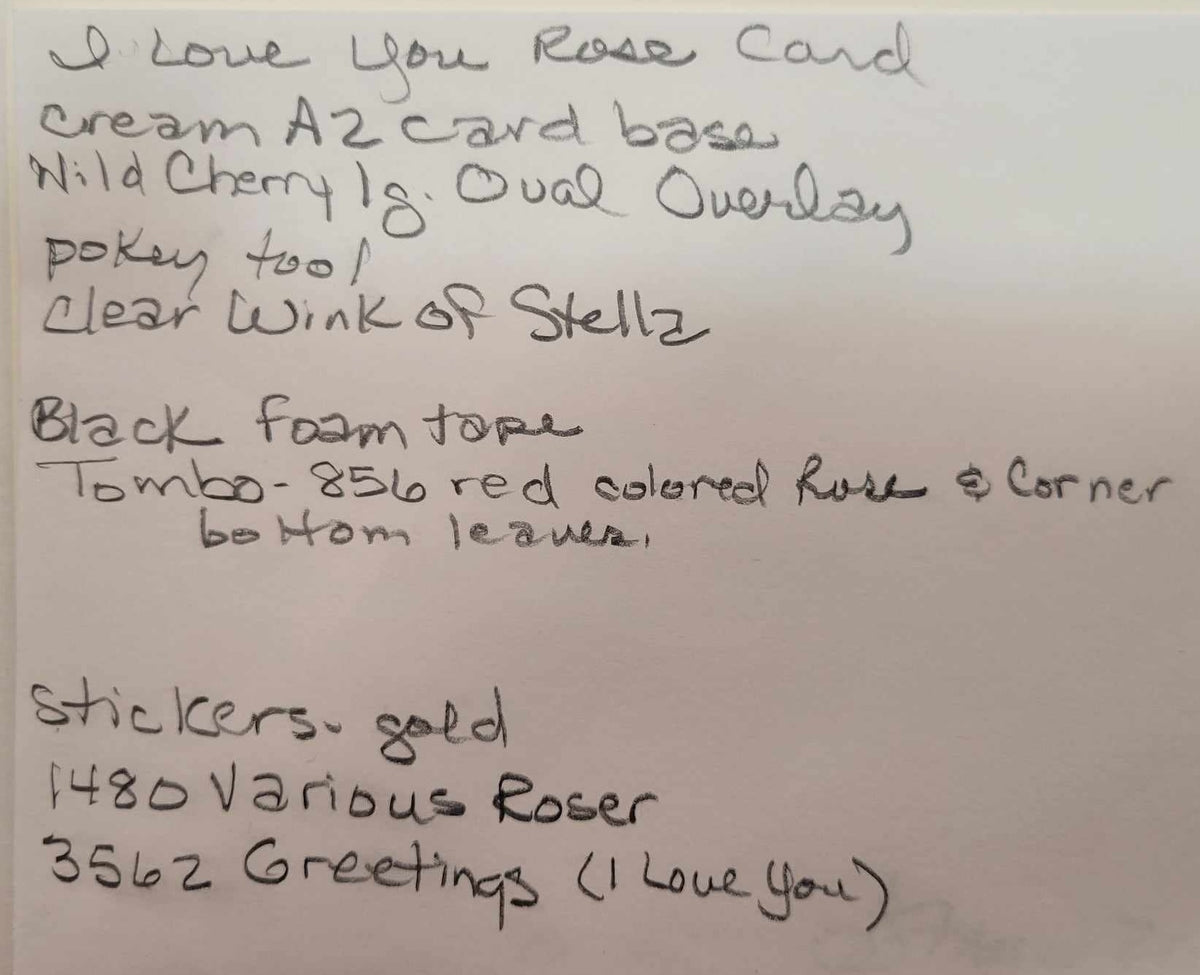 I Love You Rose Card
Cream A2 card base
Wild Cherry lg. Oval Overlay
pokey tool
Clear Wink of Stella
Black foam tape
Tombo - 856 red colored Rose & Corner
bottom leaves.
Stickers - gold
1480 Various Roses
3562 Greetings (I Love You)